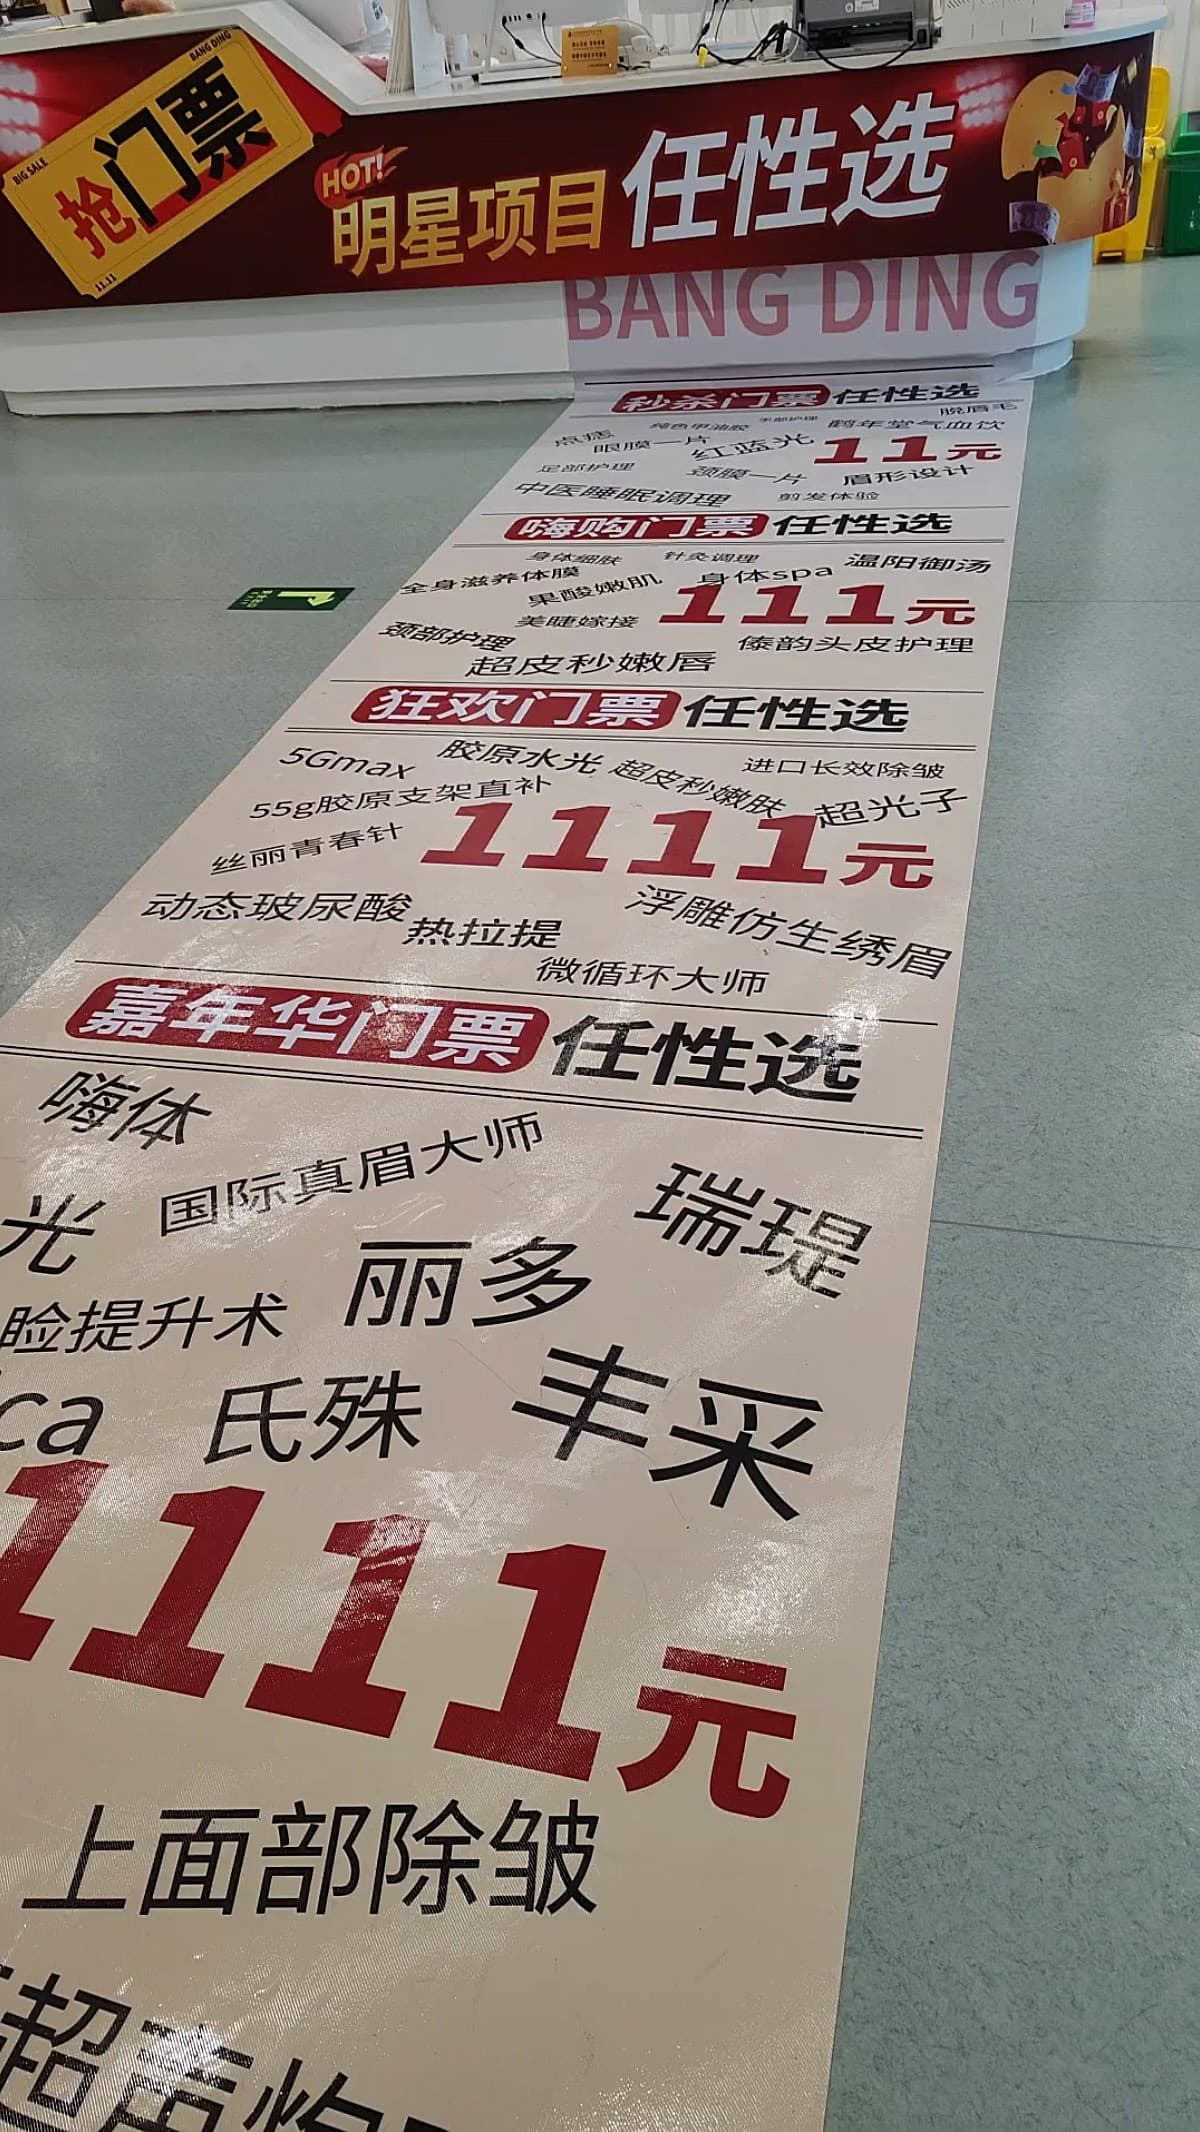 BANG DING
抢门票
BIG SALE
11.11
HOT!
明星项目 任性选
BANG DING
秒杀门票 任性选
脱眉毛
点痣 纯色甲油胶 手部护理 鹤年堂气血饮
眼膜一片 红蓝光 11元
足部护理 颈膜一片 眉形设计
中医睡眠调理 剪发体验
嗨购门票 任性选
身体细肤 针灸调理 温阳御汤
全身滋养体膜 果酸嫩肌 身体spa
美睫嫁接 111元
颈部护理 傣韵头皮护理
超皮秒嫩唇
狂欢门票 任性选
5Gmax 胶原水光 超皮秒嫩肤 进口长效除皱
55g胶原支架直补 超光子
丝丽青春针 1111元
动态玻尿酸 热拉提 浮雕仿生绣眉
微循环大师
嘉年华门票 任性选
嗨体
国际真眉大师 瑞瑅
光
丽多
睑提升术
ca 氏殊 丰采
1111元
上面部除皱
超声炮